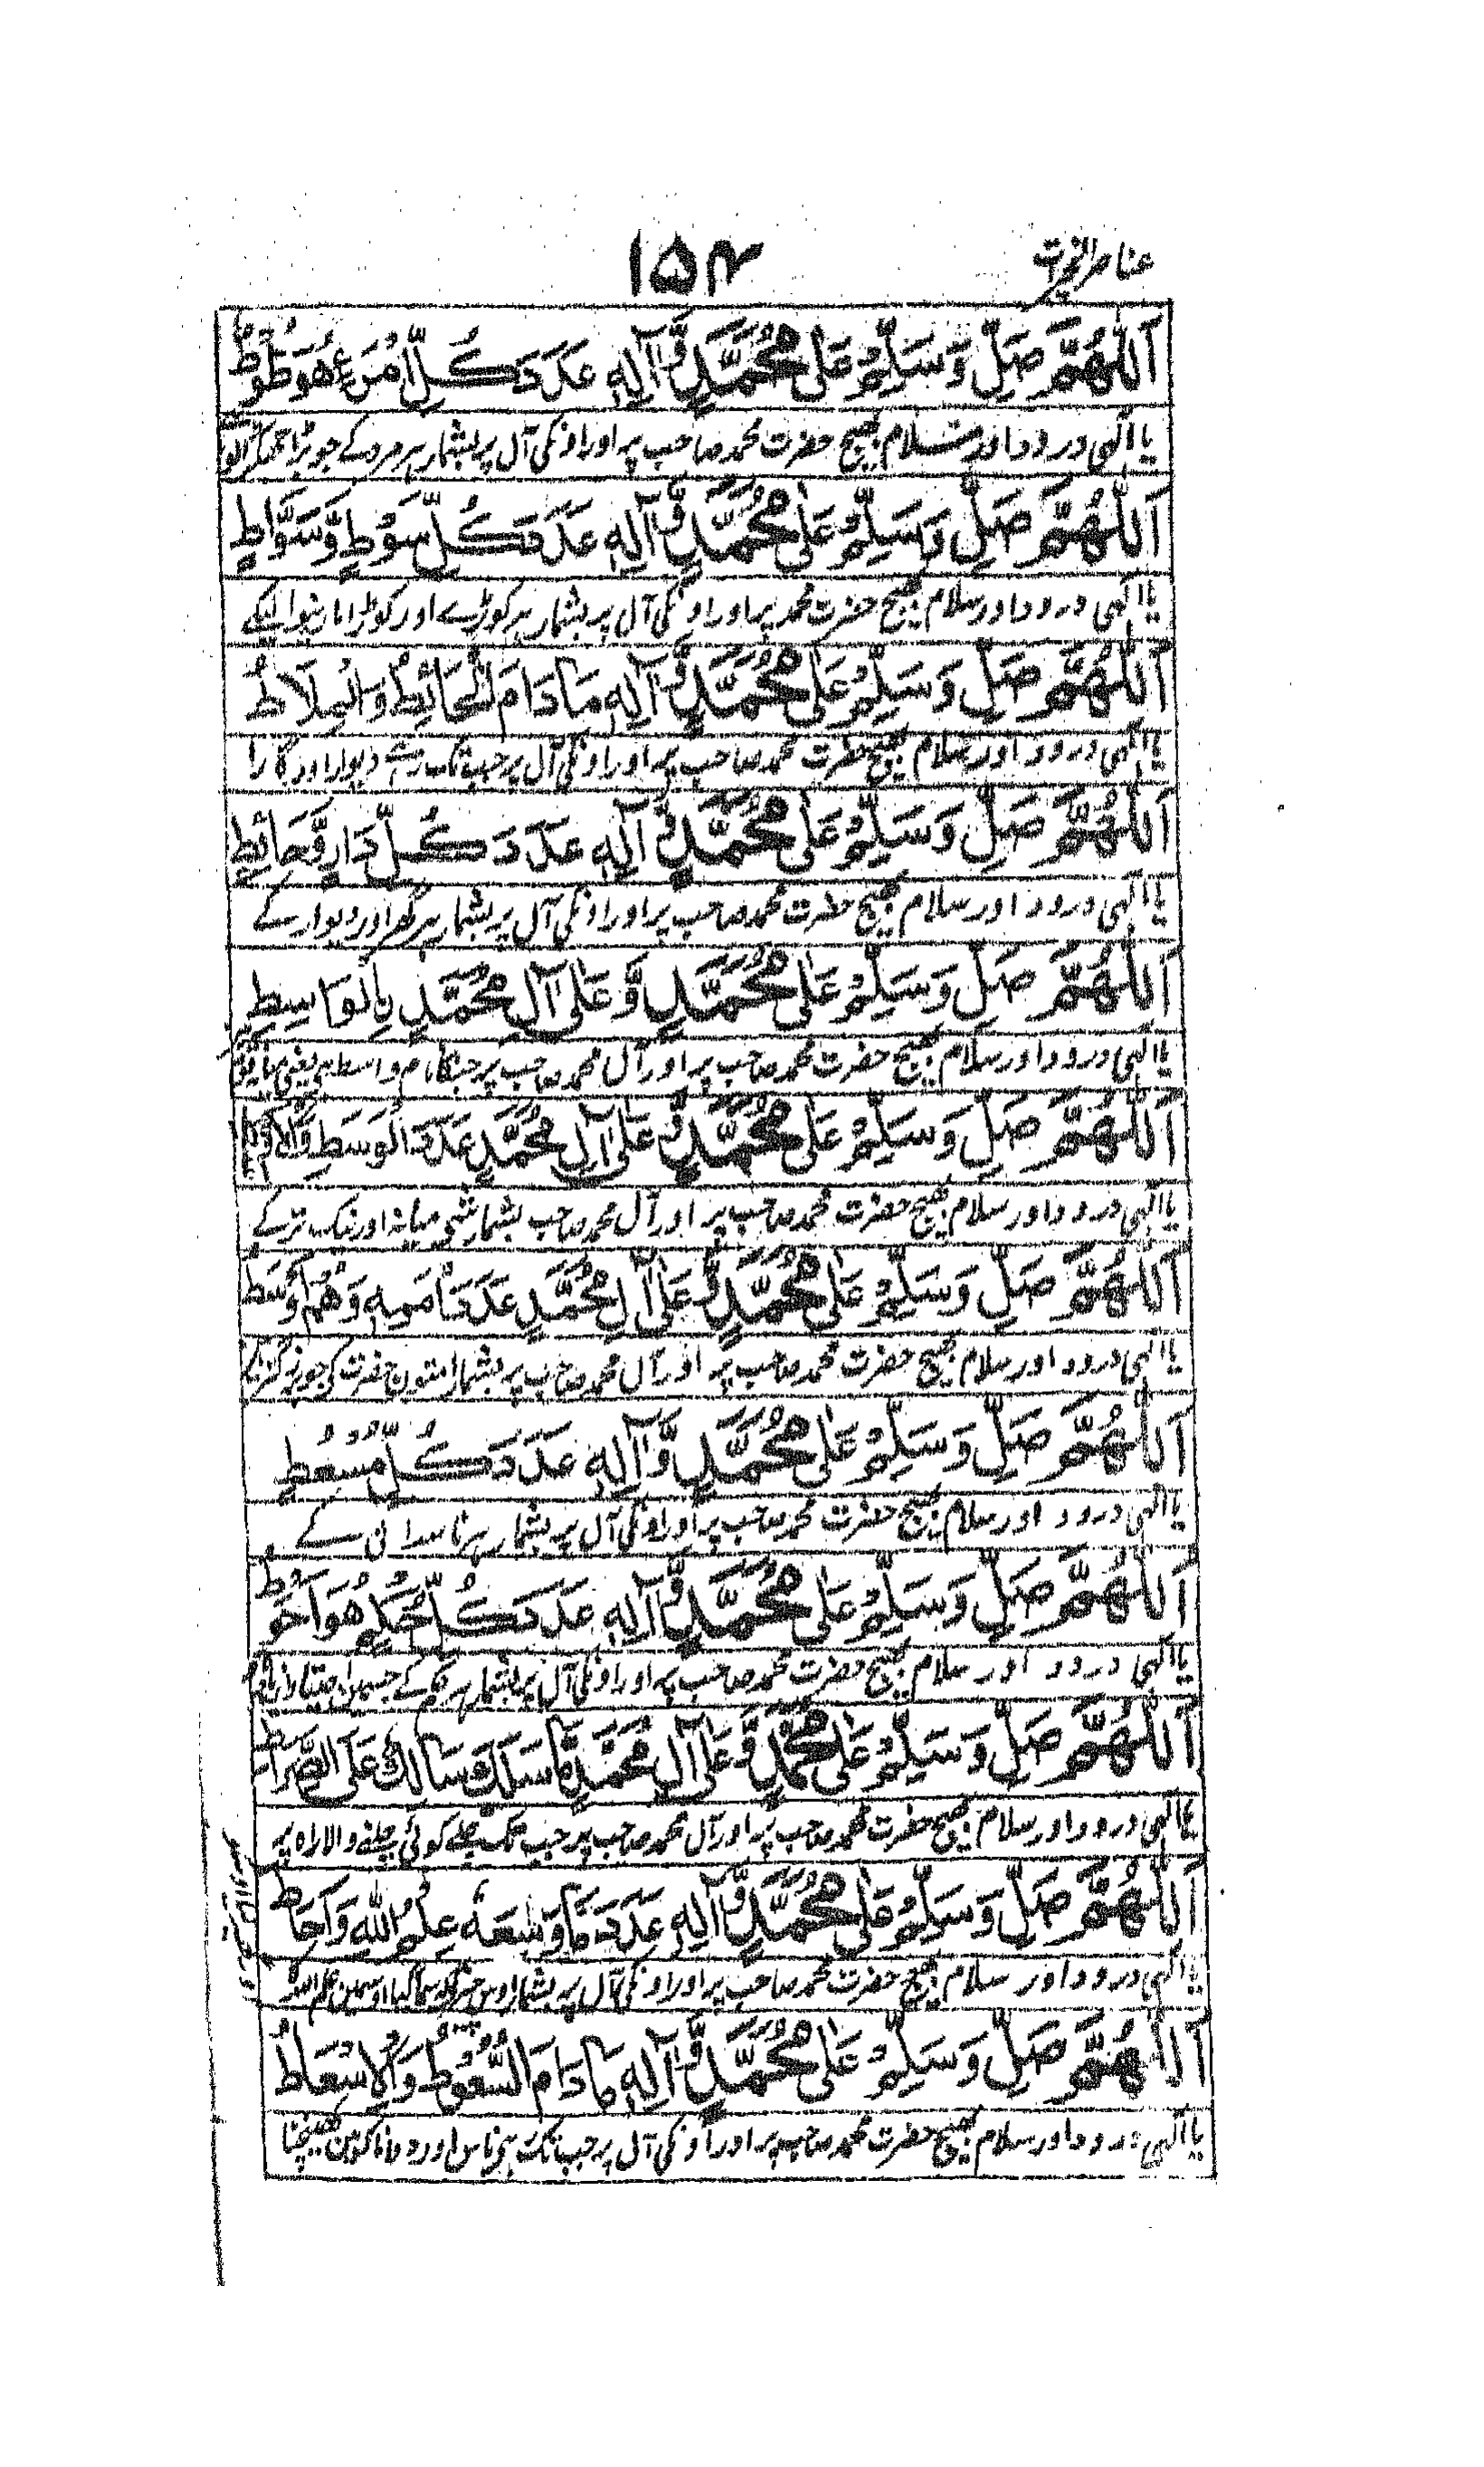 عناصر الخیرات
۱۵۴
اَللّٰهُمَّ صَلِّ وَسَلِّمْ عَلٰی مُحَمَّدٍ وَّاٰلِهٖ عَدَدَ كُلِّ مَنْ هُوَ طُوْطٌ
یا الٰہی درود اور سلام بھیج حضرت محمد صاحب پر اور اونکی آل پر بشمار ہر مرد کے جو بڑا
اَللّٰهُمَّ صَلِّ وَسَلِّمْ عَلٰی مُحَمَّدٍ وَّاٰلِهٖ عَدَدَ كُلِّ سَوْطٍ وَّسَوَّاطٍ
یا الٰہی درود اور سلام بھیج حضرت محمد پر اور اونکی آل پر بشمار ہر کوڑے اور کوڑا مارنیوالیکے
اَللّٰهُمَّ صَلِّ وَسَلِّمْ عَلٰی مُحَمَّدٍ وَّاٰلِهٖ مَا دَامَ الْحَائِطُ وَالْمِلَاطُ
یا الٰہی درود اور سلام بھیج حضرت محمد صاحب پر اور اونکی آل پر جب تک رہے دیوار اور گارا
اَللّٰهُمَّ صَلِّ وَسَلِّمْ عَلٰی مُحَمَّدٍ وَّاٰلِهٖ عَدَدَ كُلِّ دَارٍ وَّحَائِطٍ
یا الٰہی درود اور سلام بھیج حضرت محمد صاحب پر اور اونکی آل پر بشمار ہر گھر اور دیوار کے
اَللّٰهُمَّ صَلِّ وَسَلِّمْ عَلٰی مُحَمَّدٍ وَّعَلٰی اٰلِ مُحَمَّدٍ بِالْوَاسِطِ
یا الٰہی درود اور سلام بھیج حضرت محمد صاحب پر اور آل محمد صاحب پر جنکا نام واسط ہے یعنی
اَللّٰهُمَّ صَلِّ وَسَلِّمْ عَلٰی مُحَمَّدٍ وَّعَلٰی اٰلِ مُحَمَّدٍ عَدَدَ الْوَسَطِ
یا الٰہی درود اور سلام بھیج حضرت محمد صاحب پر اور آل محمد صاحب بشمار شی میانہ اور نیک تر کے
اَللّٰهُمَّ صَلِّ وَسَلِّمْ عَلٰی مُحَمَّدٍ وَّعَلٰی اٰلِ مُحَمَّدٍ عَدَدَ اُمَمِهٖ وَهُمْ اَوْسَطُ
یا الٰہی درود اور سلام بھیج حضرت محمد صاحب پر اور آل محمد صاحب پر بشمار امتون حضرت کی جو
اَللّٰهُمَّ صَلِّ وَسَلِّمْ عَلٰی مُحَمَّدٍ وَّاٰلِهٖ عَدَدَ كُلِّ مُسْعُطٍ
یا الٰہی درود اور سلام بھیج حضرت محمد صاحب پر اور اونکی آل پر بشمار ہر ناسدانی کے
اَللّٰهُمَّ صَلِّ وَسَلِّمْ عَلٰی مُحَمَّدٍ وَّاٰلِهٖ عَدَدَ كُلِّ حُكْمٍ هُوَ اَحْوَطُ
یا الٰہی درود اور سلام بھیج حضرت محمد صاحب پر اور اونکی آل پر بشمار ہر حکم کے جسمین احتیاط
اَللّٰهُمَّ صَلِّ وَسَلِّمْ عَلٰی مُحَمَّدٍ وَّعَلٰی اٰلِ مُحَمَّدٍ مَا سَلَكَ سَالِكٌ عَلَی الصِّرَاطِ
یا الٰہی درود اور سلام بھیج حضرت محمد صاحب پر اور آل محمد صاحب پر جب تک چلے کوئی چلنے والا راہ پر
اَللّٰهُمَّ صَلِّ وَسَلِّمْ عَلٰی مُحَمَّدٍ وَّاٰلِهٖ عَدَدَ مَا وَسِعَهٗ عِلْمُ اللهِ وَاَحَاطَ
یا الٰہی درود اور سلام بھیج حضرت محمد صاحب پر اور اونکی آل پر بشمار اوس چیز کے
اَللّٰهُمَّ صَلِّ وَسَلِّمْ عَلٰی مُحَمَّدٍ وَّاٰلِهٖ مَا دَامَ السُّعُوْطُ وَالْاِسْعَاطُ
یا الٰہی درود اور سلام بھیج حضرت محمد صاحب پر اور اونکی آل پر جب تک ہی ناس اور دماغ کھینچنا